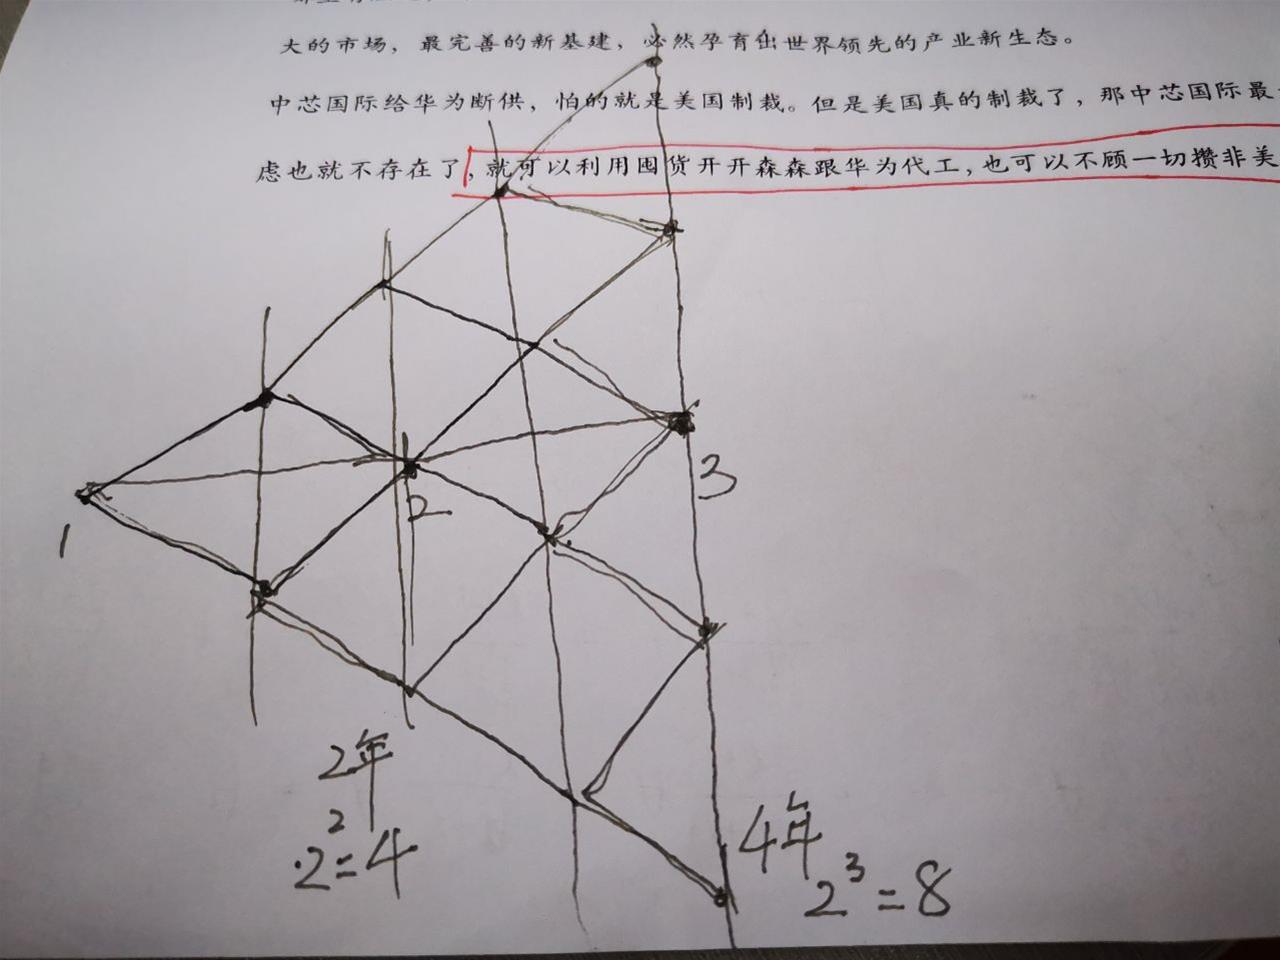 大的市场，最完善的新基建，必然孕育出世界领先的产业新生态。
中芯国际给华为断供，怕的就是美国制裁。但是美国真的制裁了，那中芯国际最
虑也就不存在了，就可以利用囤货开开森森跟华为代工，也可以不顾一切攒非美
1
2
3
2年
2²=4
4年
2³=8